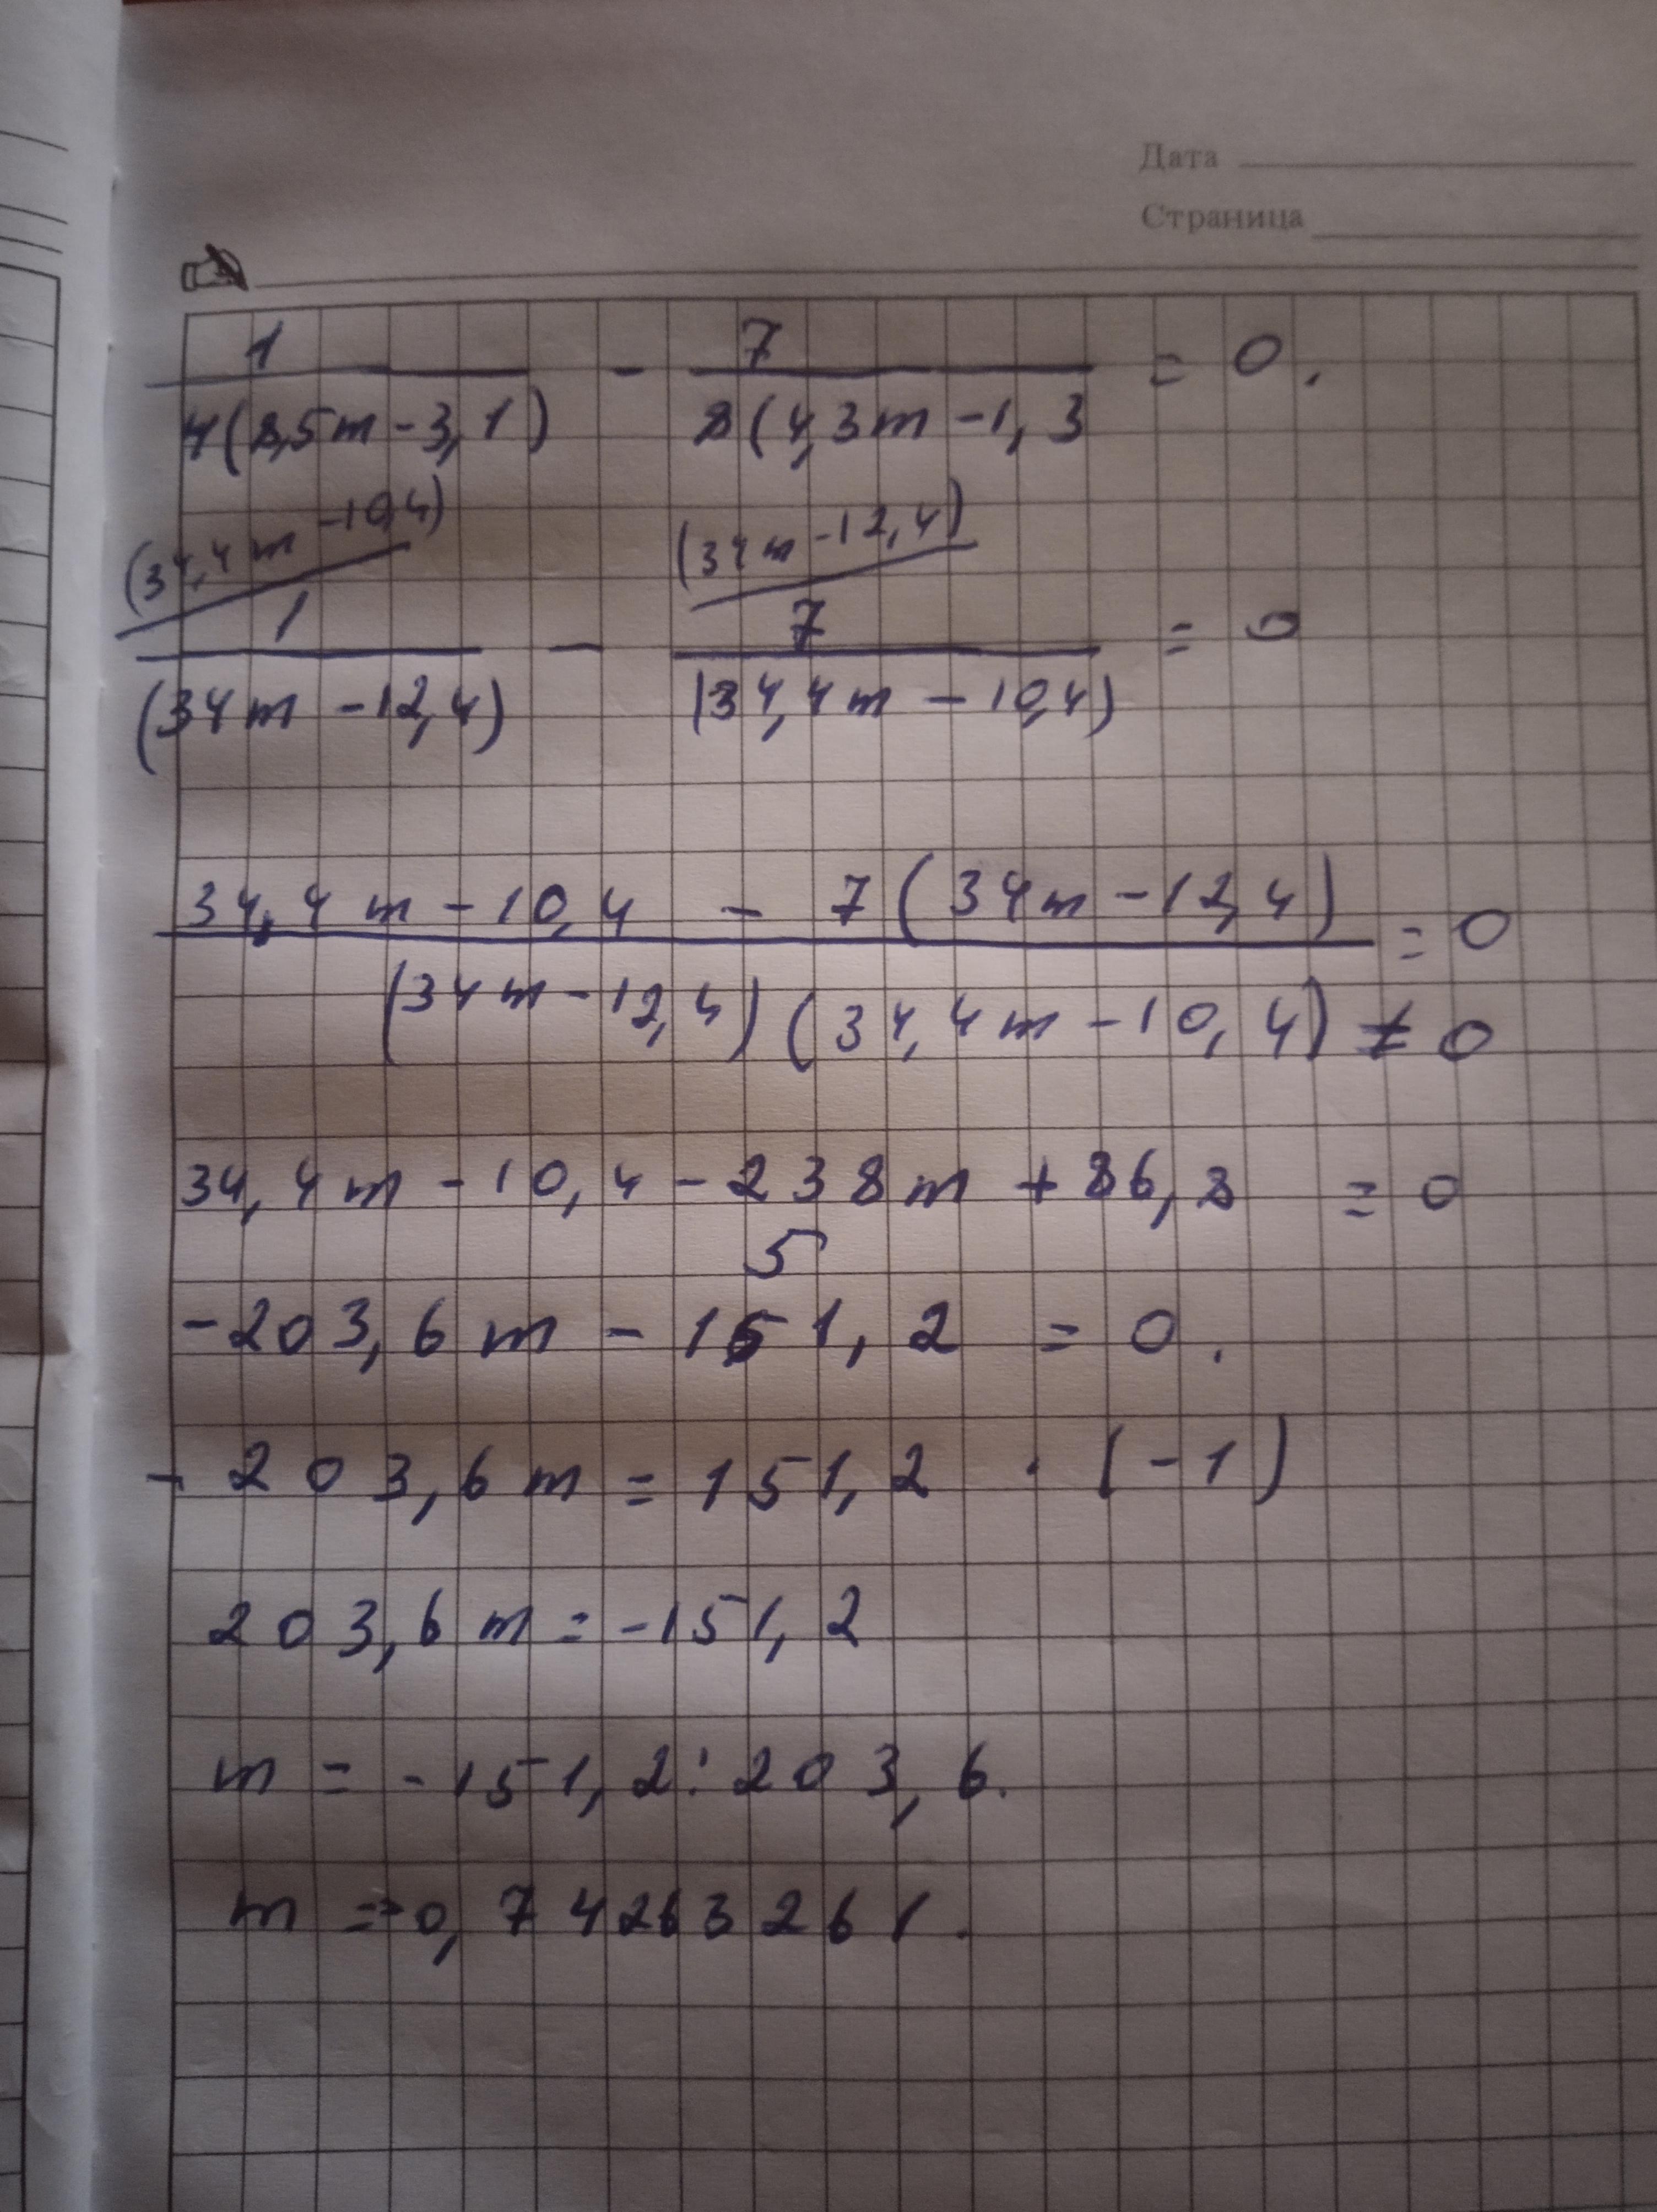 Дата
Страница
1 / 4(8,5m-3,1) - 7 / 8(4,3m-1,3 = 0.
(34,4m-10,4) (34m-12,4)
1 / (34m-12,4) - 7 / (34,4m-10,4) = 0
34,4m-10,4 - 7(34m-12,4) / (34m-12,4)(34,4m-10,4) ≠ 0 = 0
34,4m-10,4-238m+86,8 = 0
5
-203,6m-151,2 = 0.
-203,6m=151,2 · (-1)
203,6m=-151,2
m=-151,2:203,6.
m=-0,74263261.